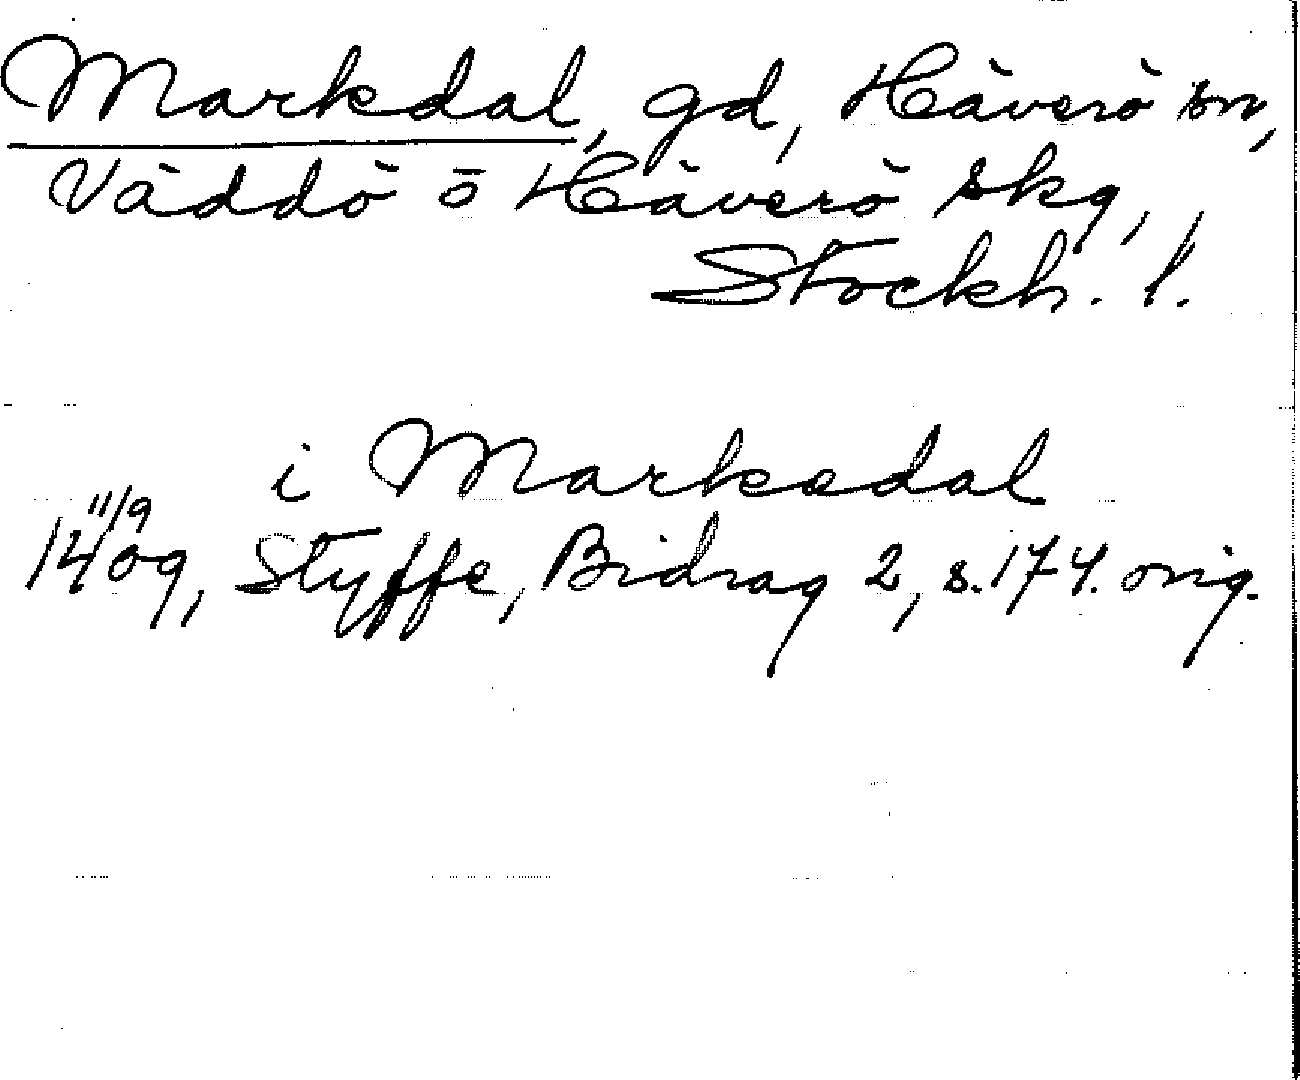 Markdal, gd, Häverö sn,
Väddö o Häverö skg,
Stockh. l.
i Markadal
11/9
1409, Styffe, Bidrag 2, s. 174. orig.